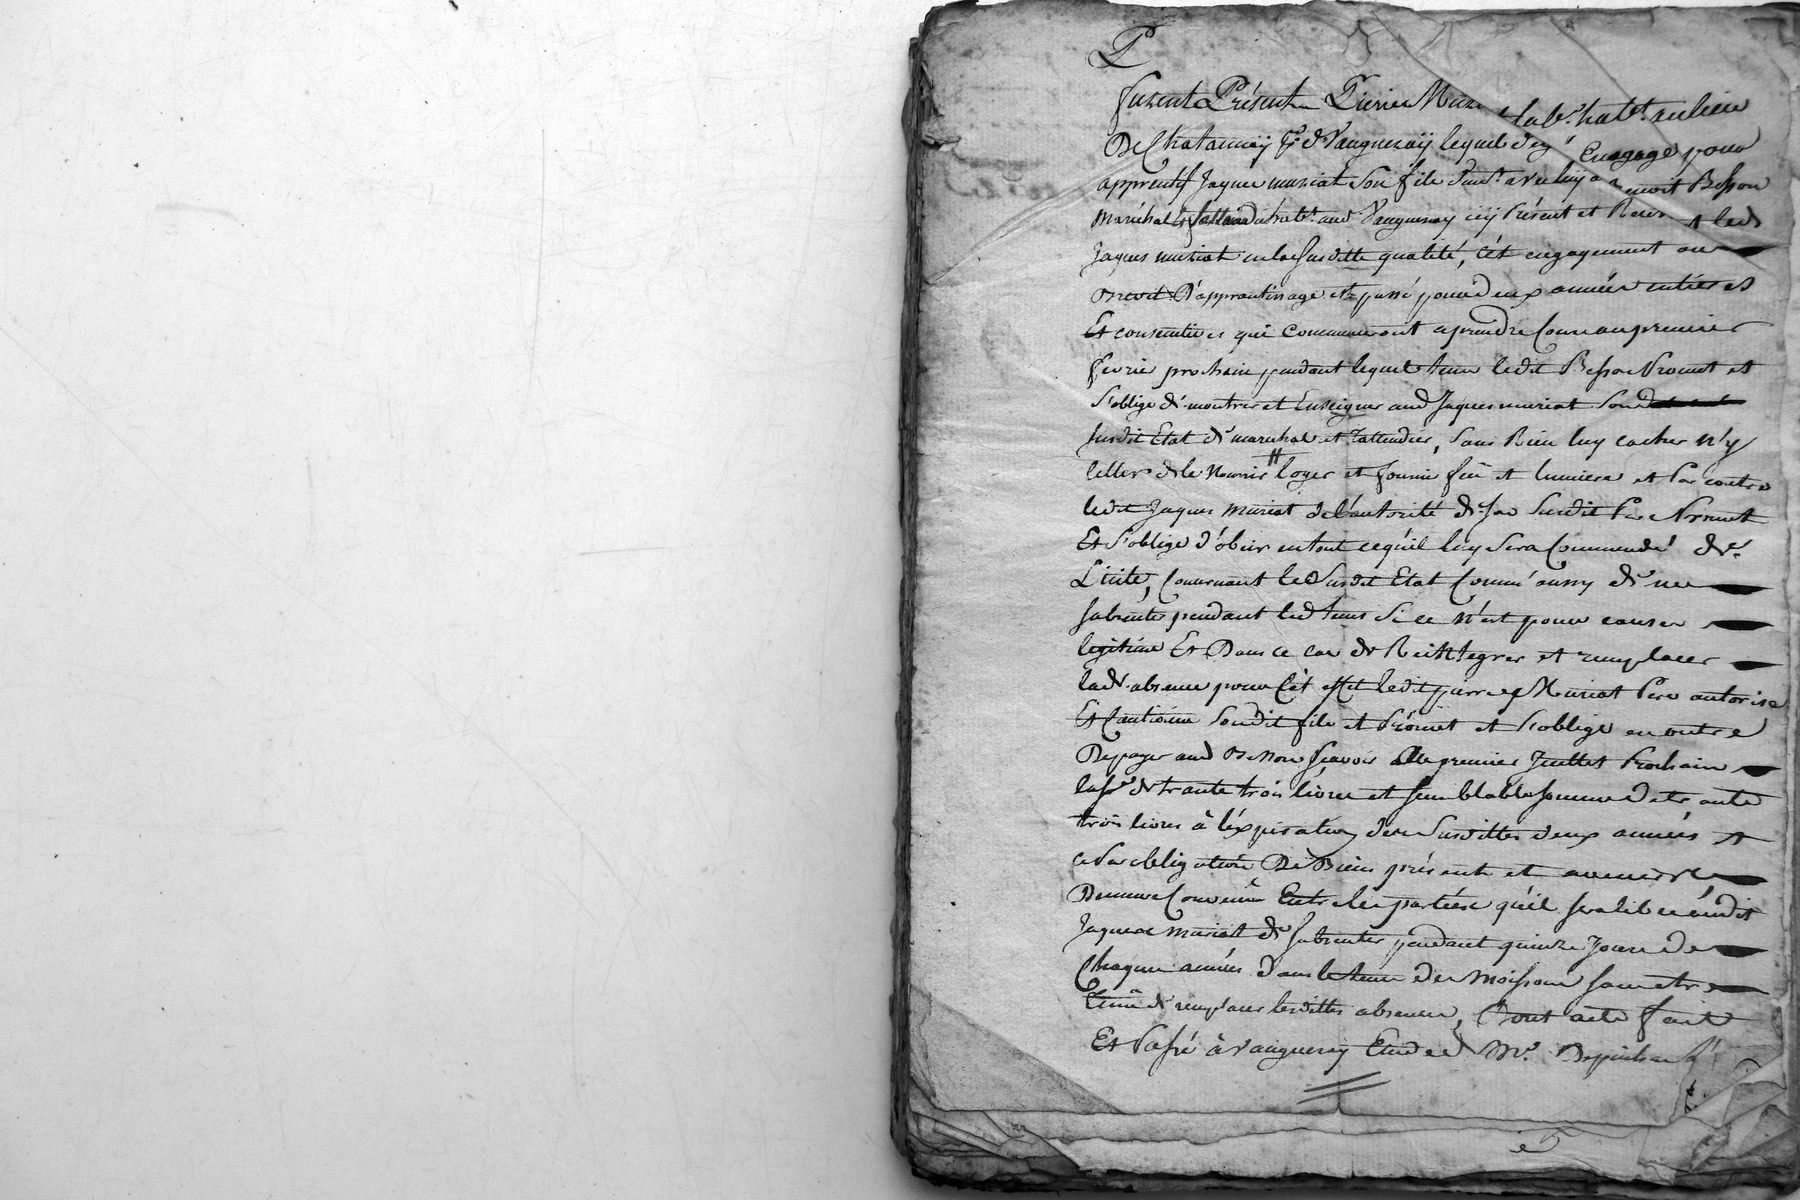 P
furent Présent Pierre Muri labr. habt. au lieu
De Chatanaÿ psse de Vaugneraÿ lequel de gré Engage pour
apprentif Jaques muriat Son fils d'une pt. avec luy a Benoit Besson
Maréchal et habt. aud. Vaugneray icÿ Présent et led
Jaques muriat en la Susditte qualité, cet engagement ou
D'apprantissage est passé pour deux années entieres
Et consecutives qui commenceront a prendre Cour au premier
fevrie prochain pendant lequel tems ledit Besson Promet et
S'oblige de montrer et Enseigner aud Jaques muriat Son
Susdit Etat de marechal et tattendier, Sans Rien luy cacher n'y
celler de le Nourrir # loger et fournir feu et lumiere et Par contre
ledit Jaques Muriat de l'autorité de Son Susdit Pere Promet
Et S'oblige d'obeir en tout ce qu'il luy Sera Commendé de
L'icite, Concernant le Susdit Etat Comm'aussy de ne
Sabsenter pendant led tems Si ce n'est pour cause
legitime Et Dans ce cas de Reinttegrer et remplacer
lad. absence pour Cet effet ledit pierre Muriat Pere autorise
Et Cautionne Sondit fils et Promet et S'oblige en outre
De payer aud Besson Scavoir au premier Juillet Prochain
la Se. de trante trois livres et semblable somme de trante
trois livres à l'éxpiration des Susdittes deux années
ce Par obligation De Biens présents et avenir
Demeure Convenu Entre les parties qu'il sera libre audit
Jaques Muriat de s'absenter pendant quinze Jours de
Chaque années dans le tems des Moissons sans etre
Tenu de remplacer lesdittes absences, Dont acte fait
Et Passé à Vaugneray Etude de Me.